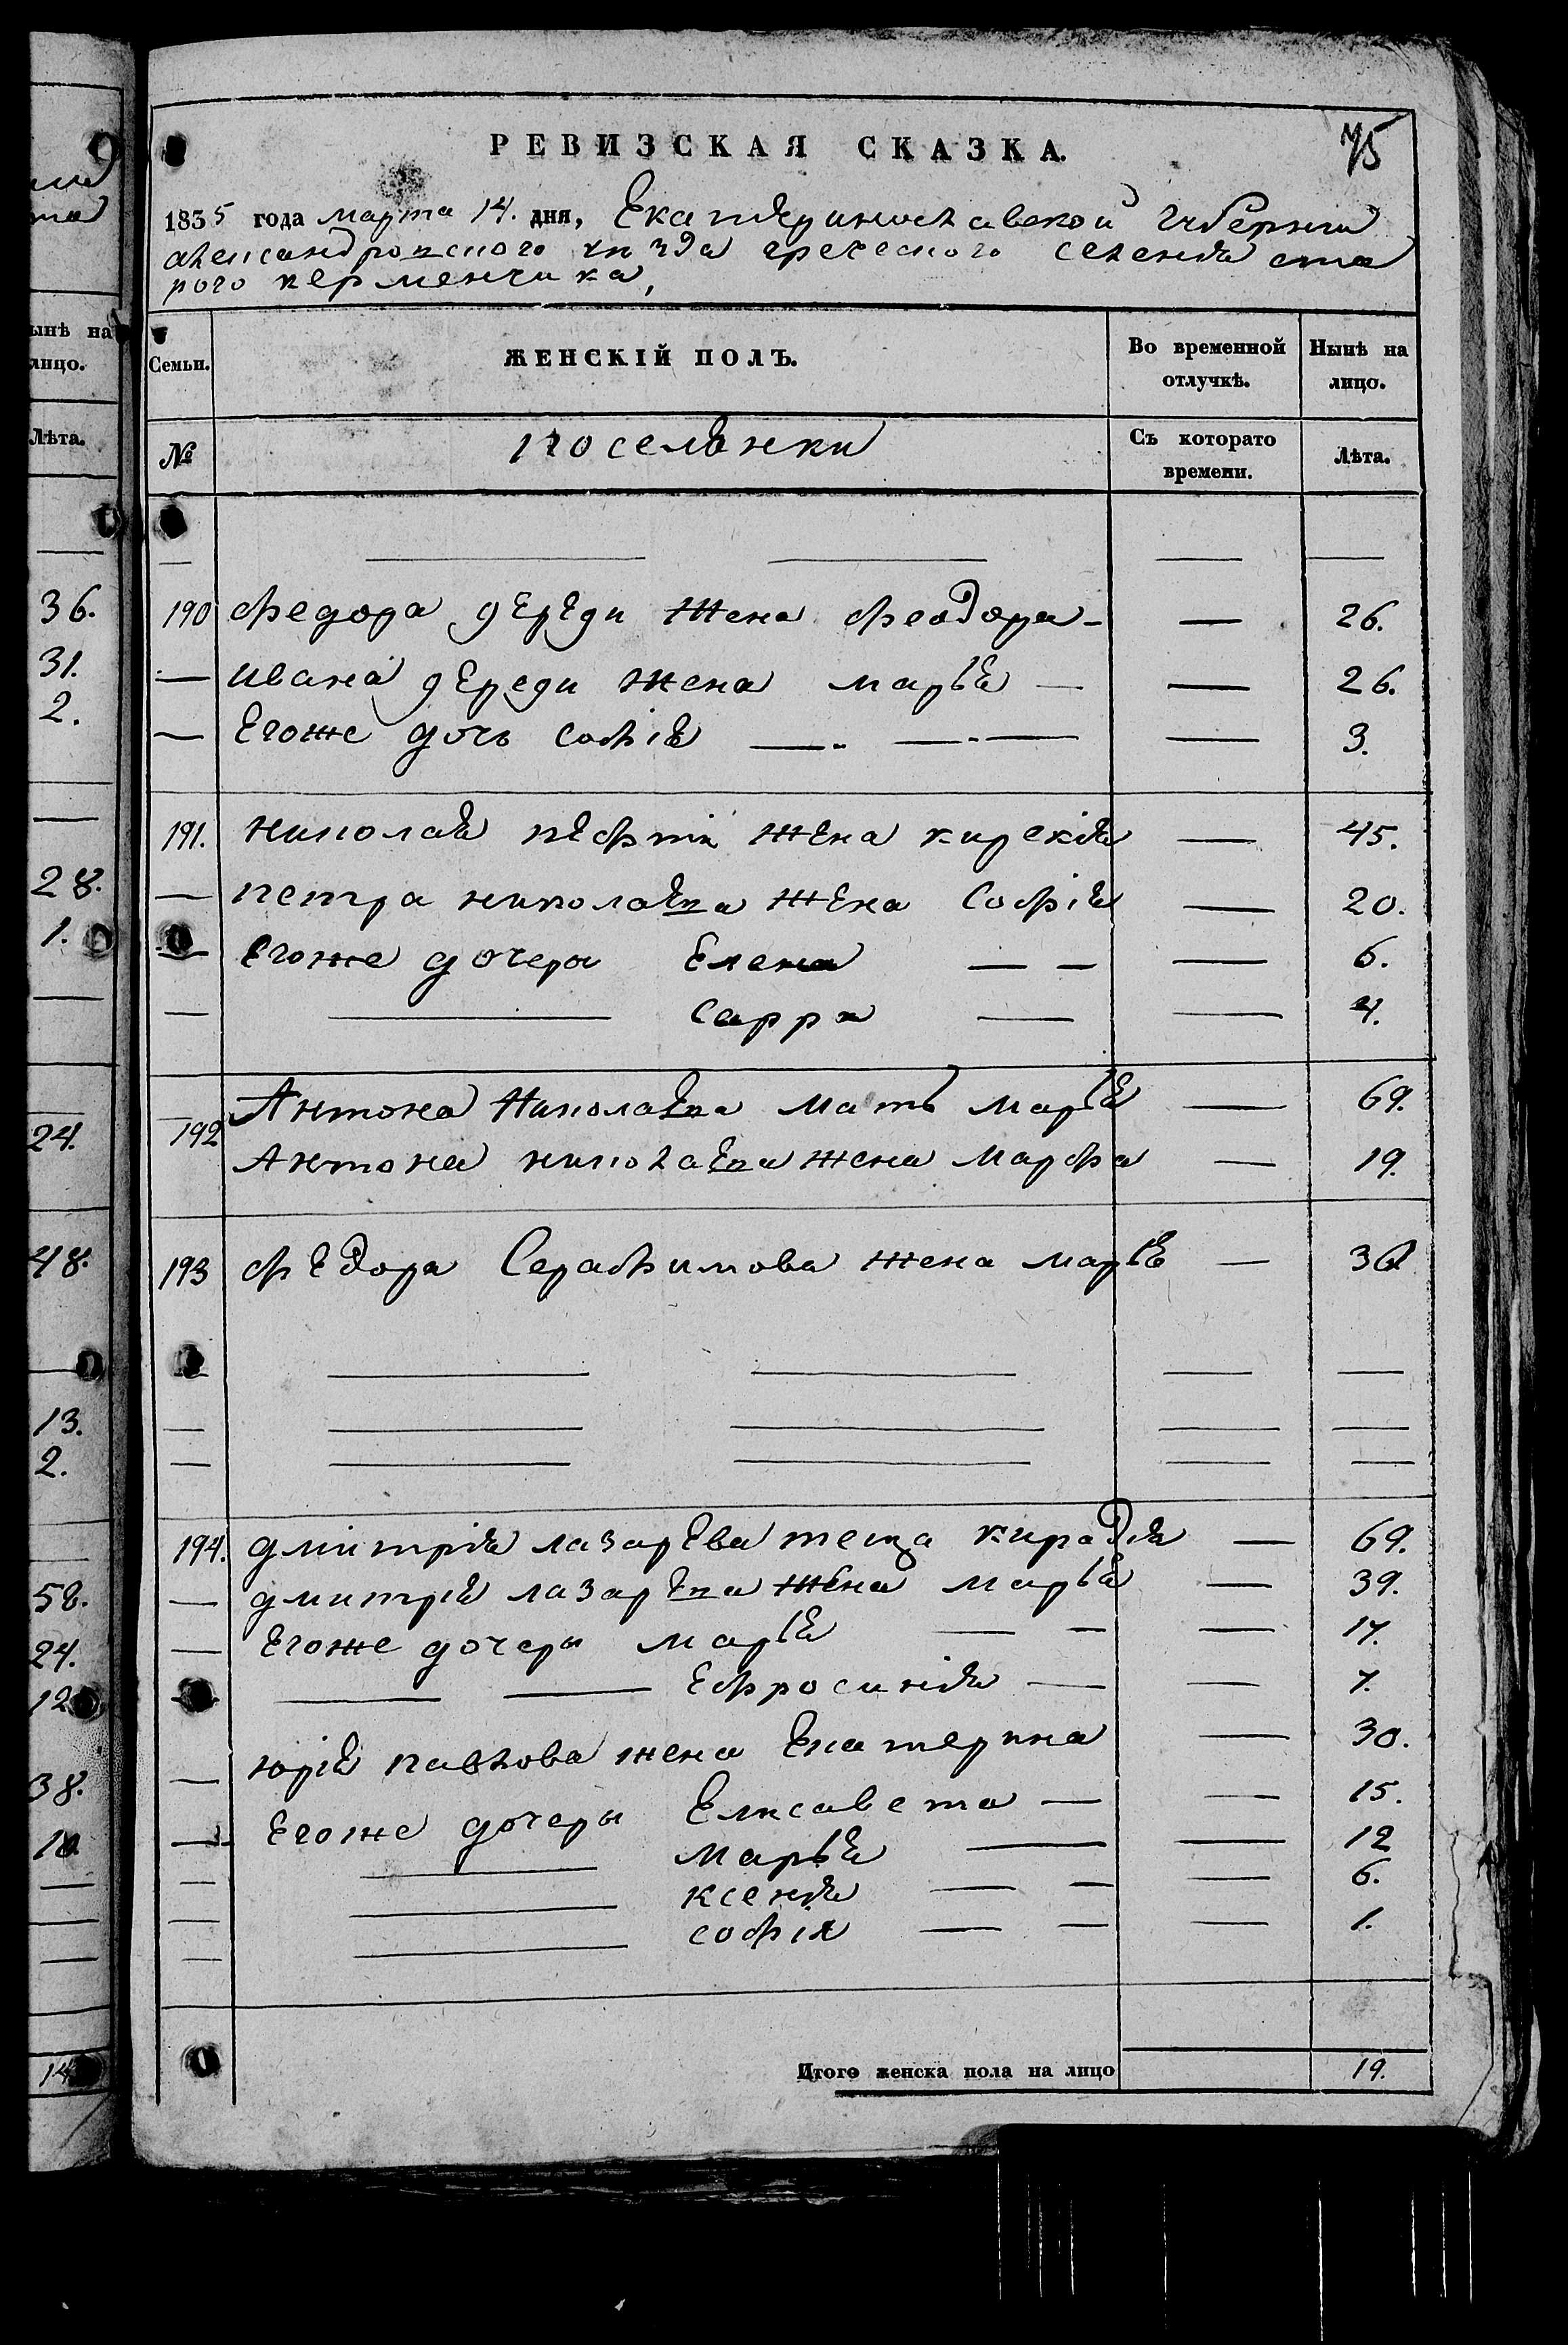 75
РЕВИЗСКАЯ СКАЗКА.
1835 года марта 14. дня, Екатеринославской губернии
александровского уезда греческого селения ста
рого керменчика,
Семьи. ЖЕНСКІЙ ПОЛЪ. Во временной отлучкѣ. Нынѣ на лицо.
№ поселянки Съ котораго времени. Лѣта.
— — — — —
190 Федора дереди жена феодора — — 26.
— ивана дереди жена марья — — 26.
— Егоже дочь софія — — — 3.
191. николая жена кирекія — 45.
— петра николаева жена Софія — 20.
— Егоже дочери Елена — — — 6.
— — Сарра — — 4.
192 Антона Николаева мать марья — 69.
Антона николаева жена марфа — 19.
193 федора Серафимова жена марья — 36
— — — — —
— — — — —
— — — — —
194. дмитрія лазарева теща — 69.
— дмитрія лазарева жена марья — 39.
— Егоже дочери марья — — — 17.
— — — Ефросинія — — 7.
— юрія павлова жена Екатерина — 30.
— Егоже дочери Елисавета — — 15.
— — марья — — 12
— — ксенія — — — 6.
— — софія — — — 1.
Итого женска пола на лицо 19.
ынѣ на
лицо.
Лѣта.
36.
31.
2.
28.
1.
24.
48.
13.
2.
58.
24.
12
38.
10
14